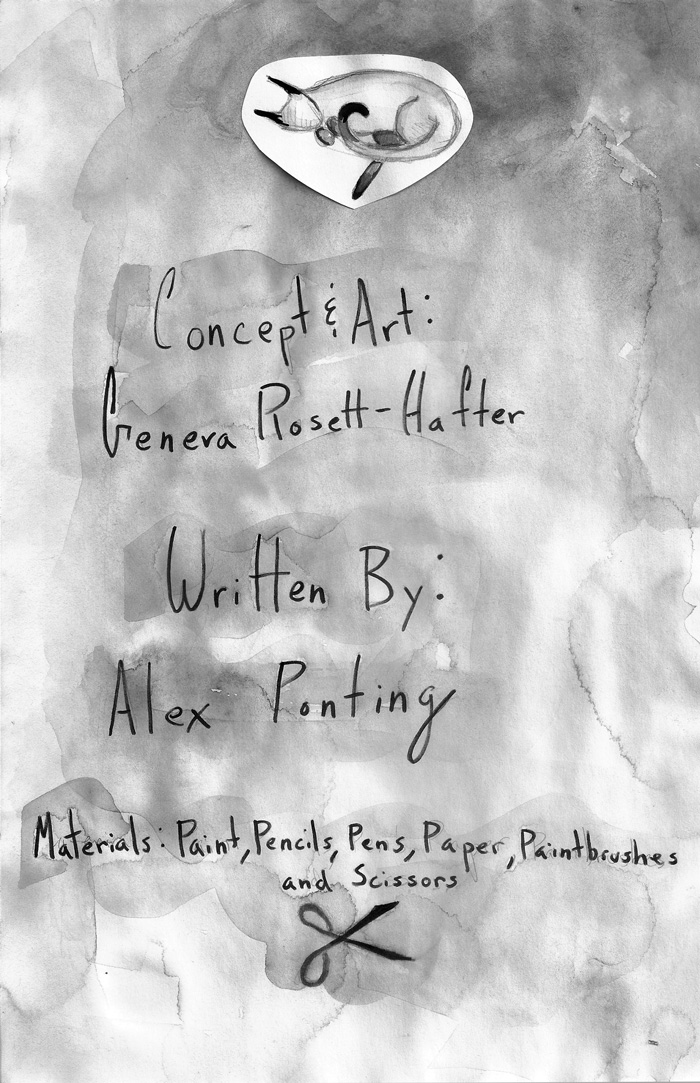 Concept & Art:
Geneva Rosett-Hafter
Written By:
Alex Ponting
Materials: Paint, Pencils, Pens, Paper, Paintbrushes
and Scissors